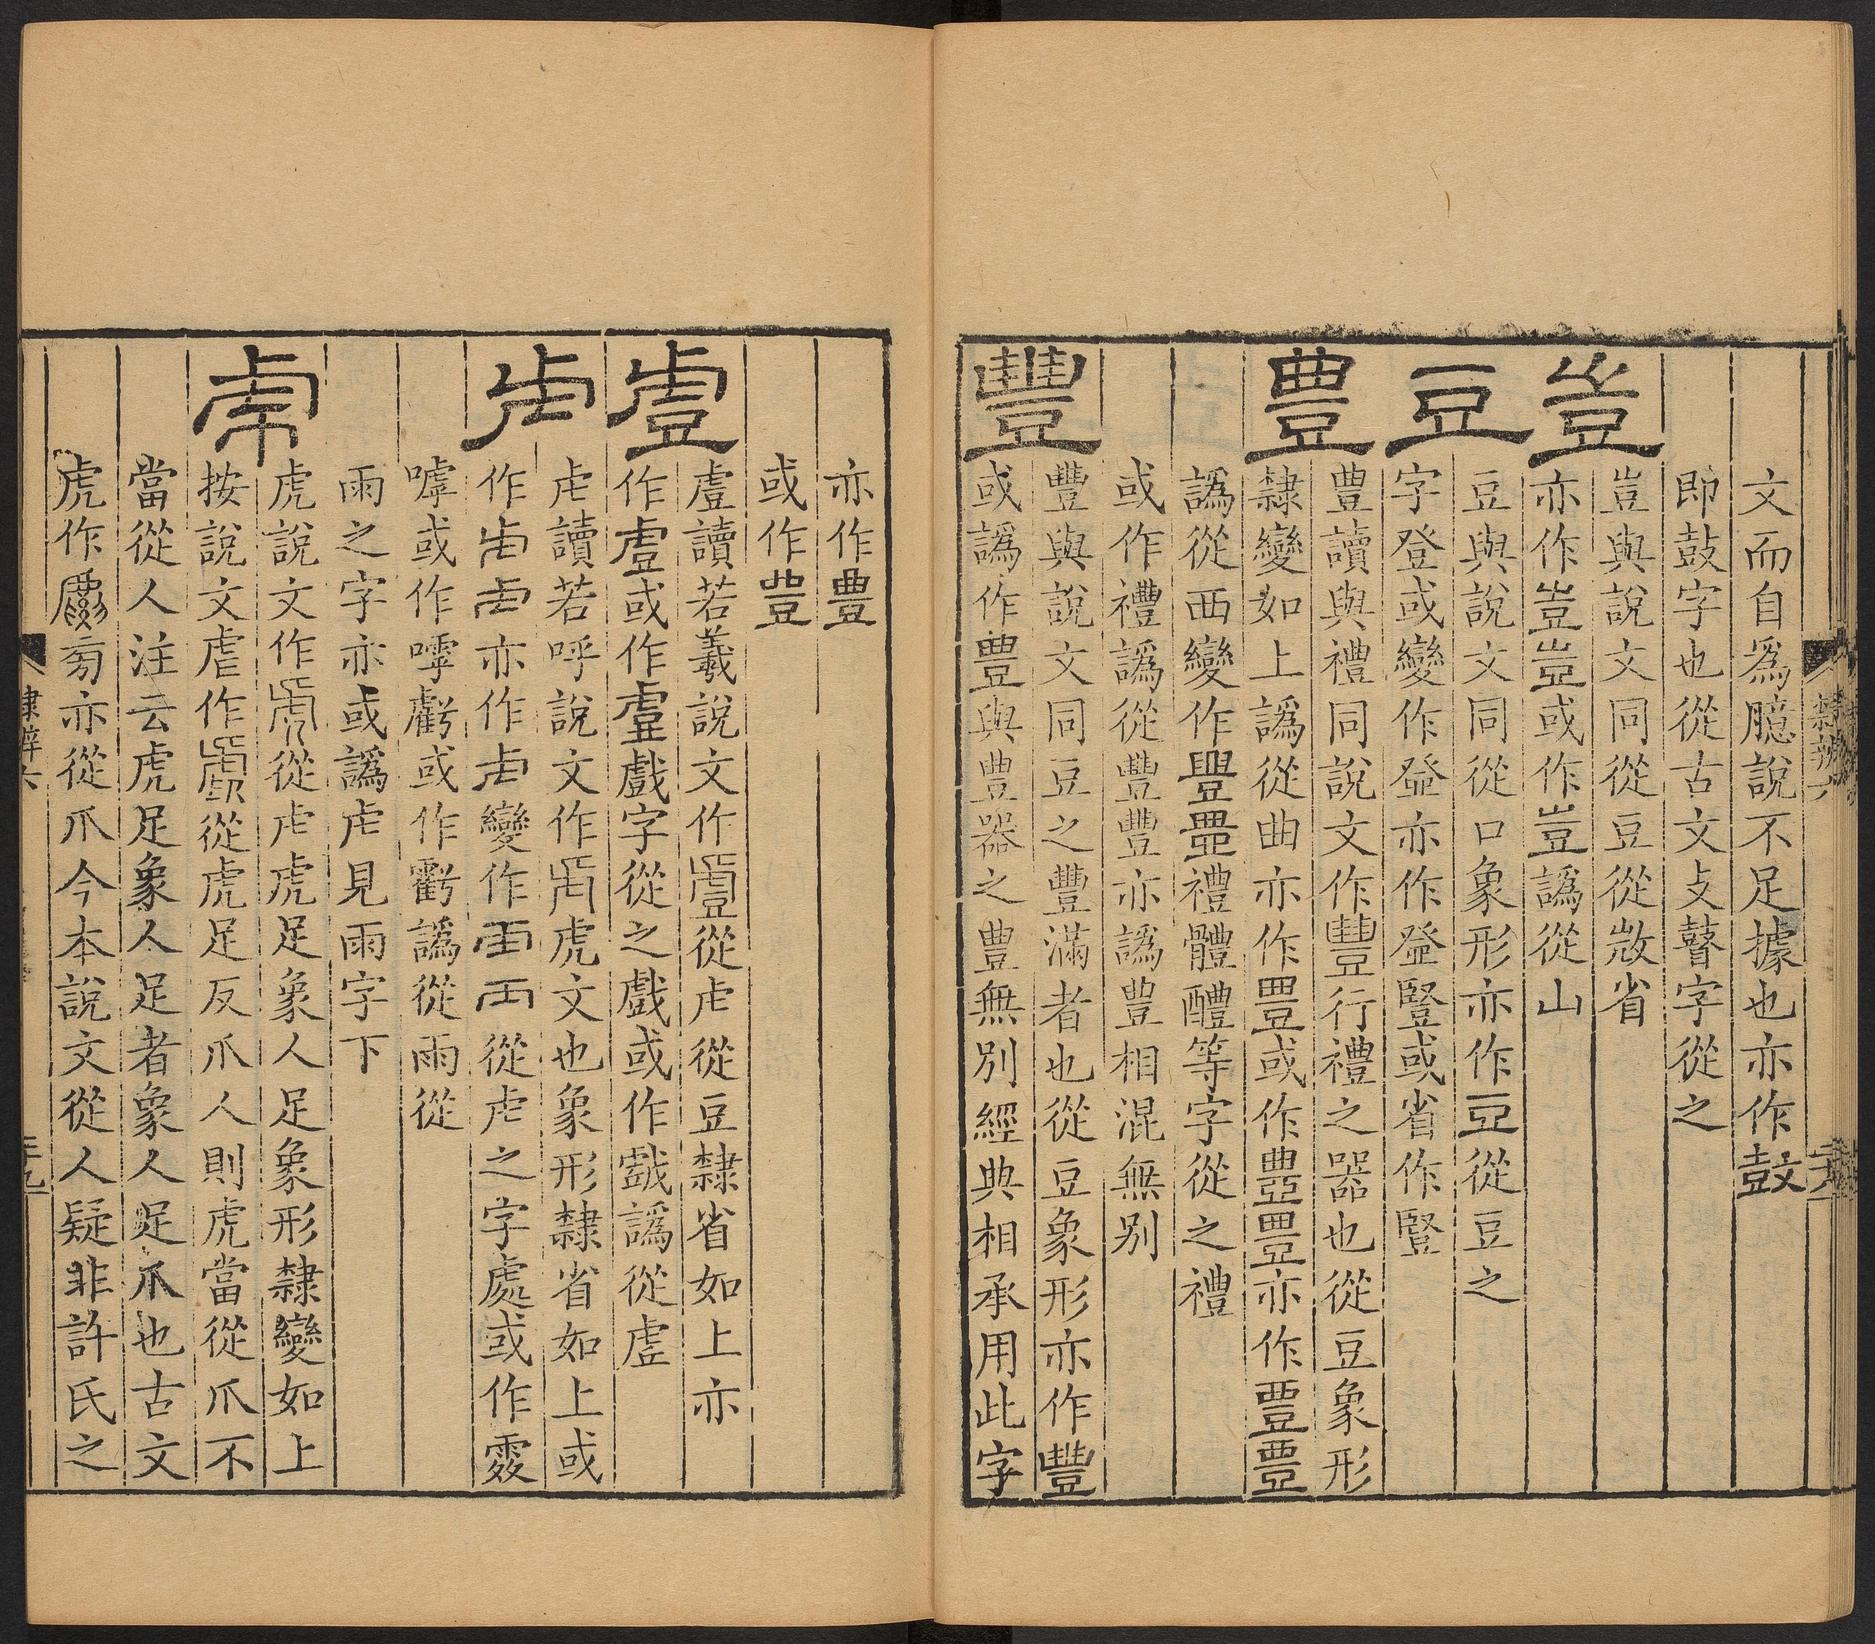 文而自爲臆說不足據也亦作鼓
即鼓字也從古文攴鼛字從之
豈
豈與說文同從豆從𢼸省
亦作豈豈或作豈譌從山
豆
豆與說文同從口象形亦作豆從豆之
字登或變作登亦作登豎或省作豎
豊
豊讀與禮同說文作豊行禮之器也從豆象形
隸變如上譌從曲亦作豊或作豊豊亦作豊豊
譌從西變作豊豊禮體醴等字從之禮
或作禮譌從豐豐亦譌豊相混無別
豐
豐與說文同豆之豐滿者也從豆象形亦作豐
或譌作豊與豊器之豊無別經典相承用此字
隸辨六
亦作豊
或作豈
䖒
䖒讀若羲說文作䖒從虍從豆隸省如上亦
作䖒或作䖒戲字從之戲或作戲譌從虛
虍
虍讀若呼說文作虍虎文也象形隸省如上或
作虍虍亦作虍變作雨從虍之字處或作䨏
嘑或作嘑虧或作虧譌從雨從
雨之字亦或譌虍見雨字下
虎
虎說文作虎從虍虎足象人足象形隸變如上
按說文虐作虐從虎足反爪人則虎當從爪不
當從人注云虎足象人足者象人足爪也古文
虎作𧇂𠒂亦從爪今本說文從人疑非許氏之
隸辨六
三十九